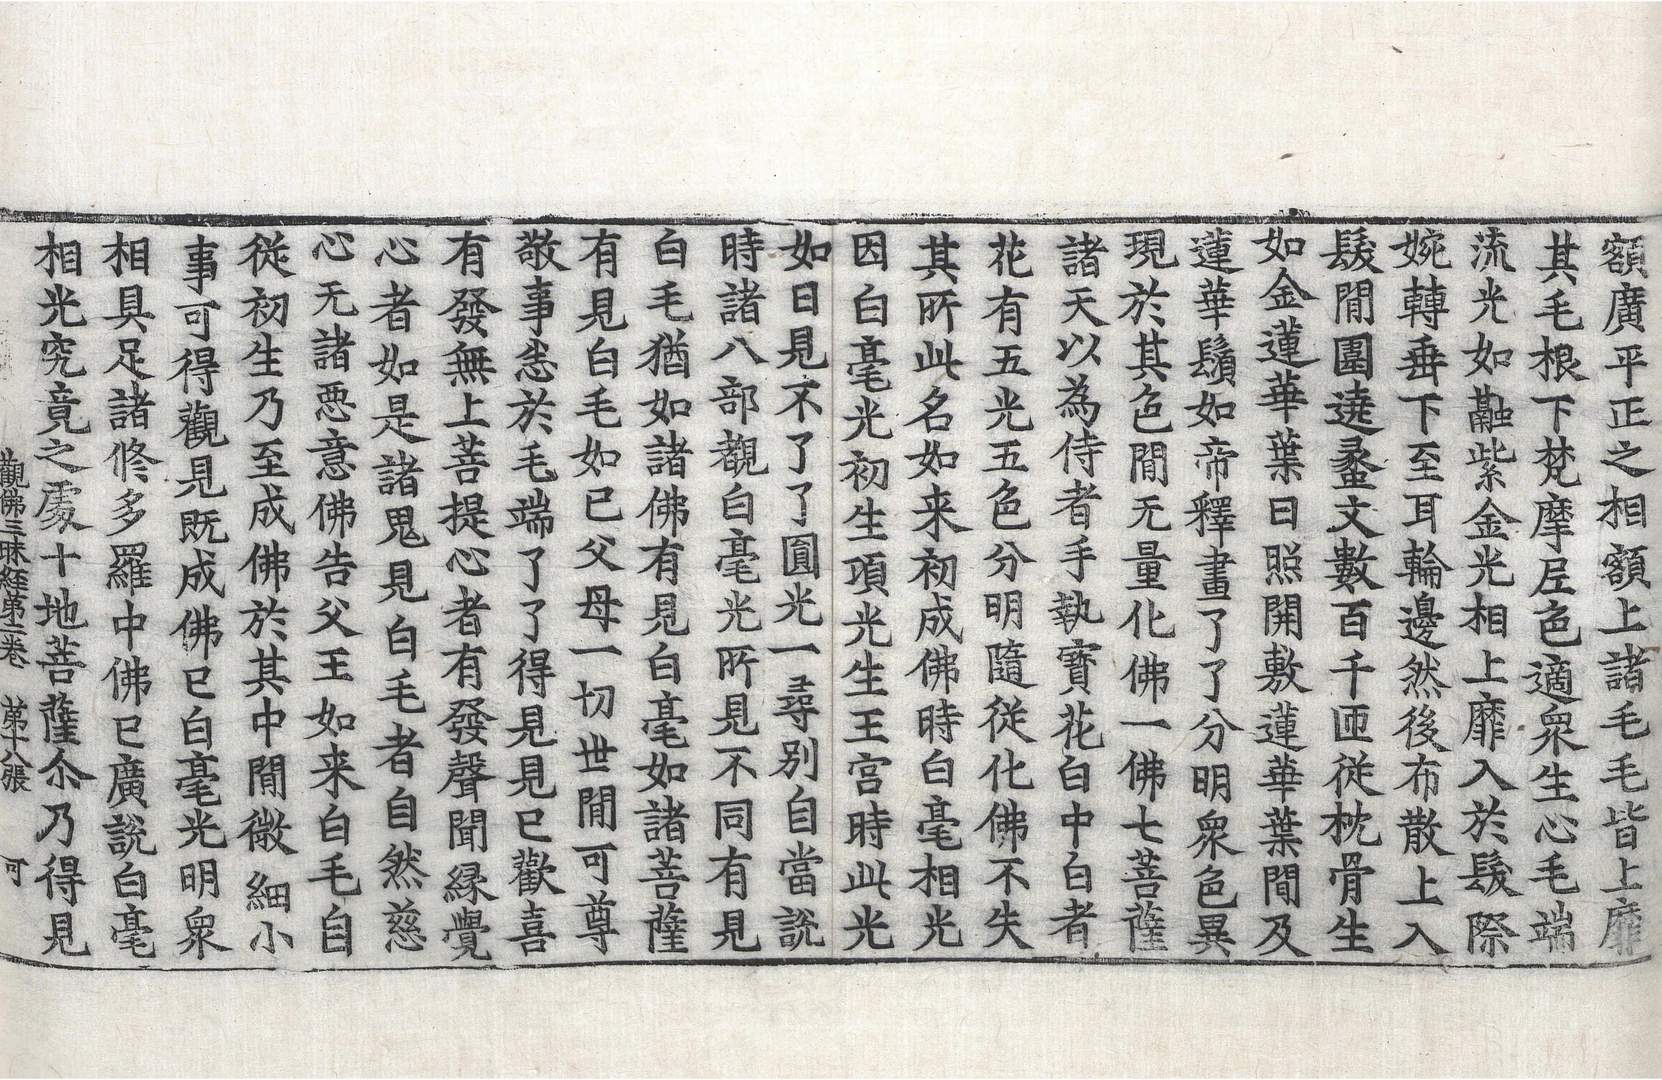 額廣平正之相額上諸毛毛皆上靡
其毛根下梵摩𡰱色適衆生心毛端
流光如融紫金光相上靡入於䰂際
婉轉垂下至耳輪邊然後布散上入
䰂間圍遶蜜文數百千匝從枕骨生
如金蓮華葉日照開敷蓮華葉間及
蓮華鬚如帝釋畫了了分明衆色異
現於其色間无量化佛一佛七菩薩
諸天以為侍者手執寶花白中白者
花有五光五色分明隨從化佛不失
其所此名如来初成佛時白毫相光
因白毫光初生項光生王宮時此光
如日見不了了圎光一尋别自當説
時諸八部觀白毫光所見不同有見
白毛猶如諸佛有見白毫如諸菩薩
有見白毛如已父母一切世間可尊
敬事悉於毛端了了得見見已歡喜
有發無上菩提心者有發聲聞縁覺
心者如是諸鬼見白毛者自然慈
心无諸惡意佛告父王如来白毛自
從初生乃至成佛於其中間微細小
事可得觀見既成佛已白毫光明衆
相具足諸修多羅中佛已廣說白毫
相光究竟之處十地菩薩尒乃得見
觀佛三昧經第二卷　第十八張　可